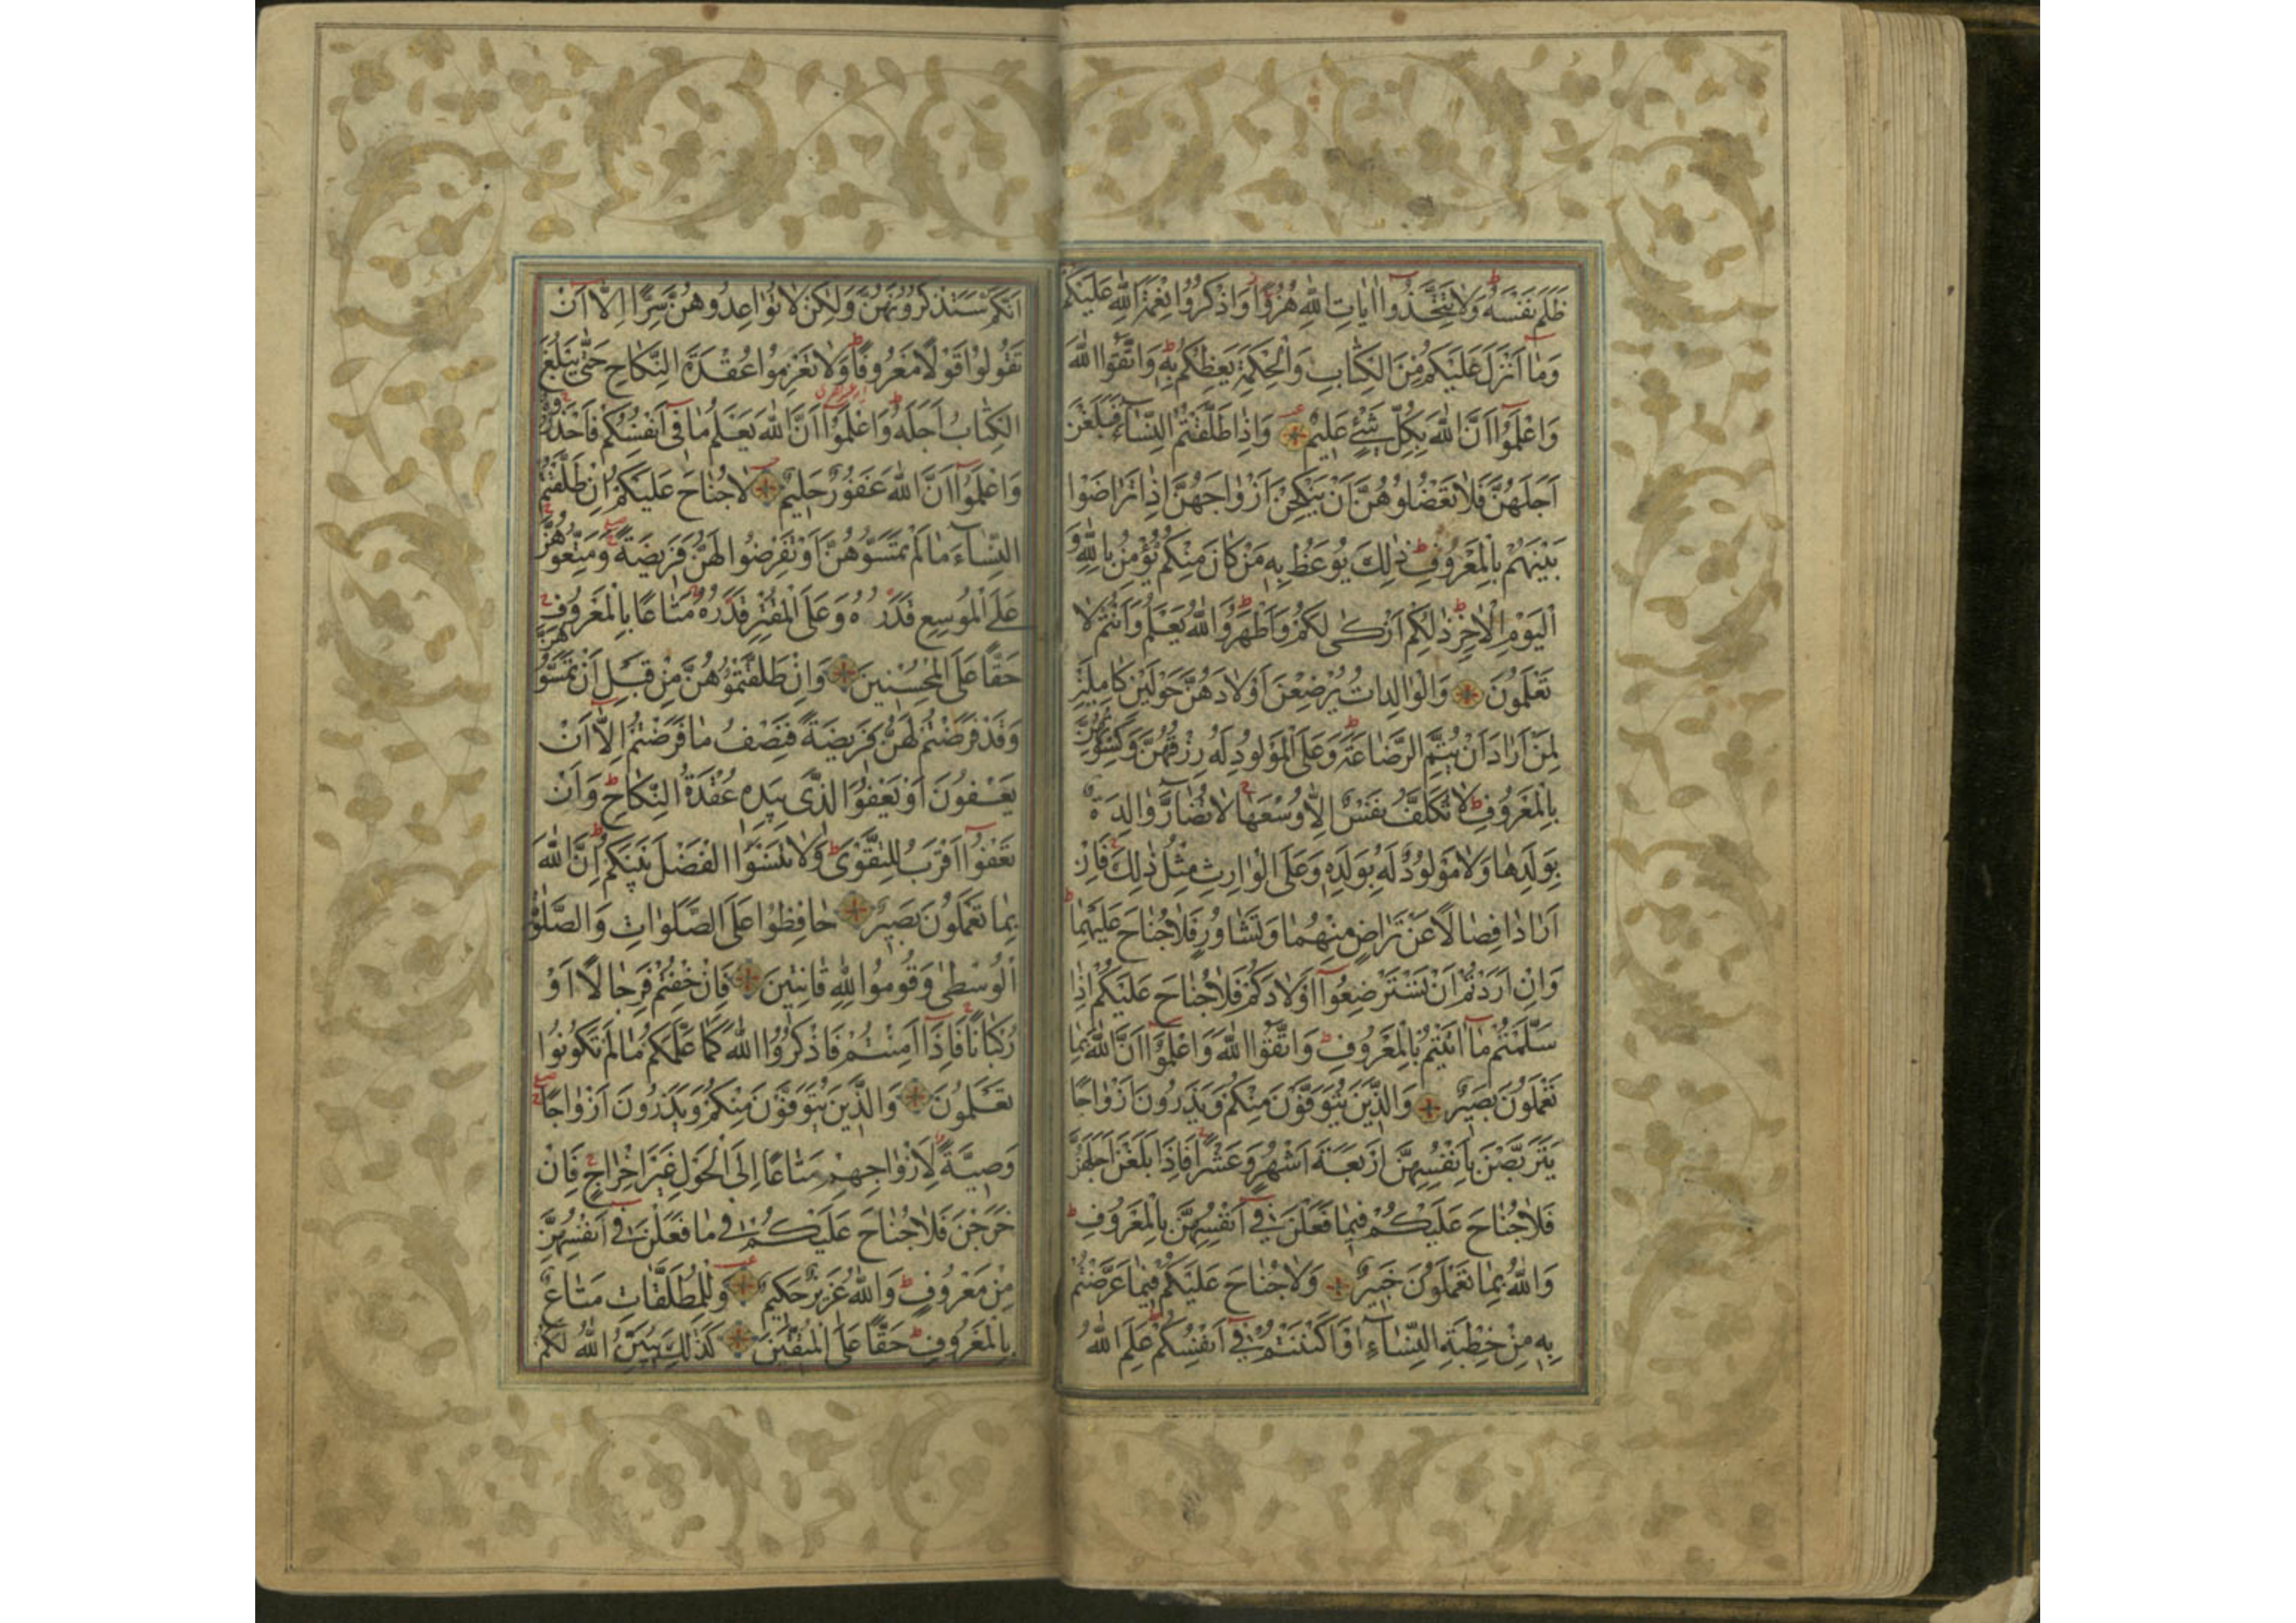 ظَلَمَ نَفْسَهُ وَلَا تَتَّخِذُوا اٰيَاتِ اللّٰهِ هُزُوًا وَاذْكُرُوا نِعْمَةَ اللّٰهِ عَلَيْكُمْ
وَمَا اَنْزَلَ عَلَيْكُمْ مِنَ الْكِتَابِ وَالْحِكْمَةِ يَعِظُكُمْ بِهِ وَاتَّقُوا اللّٰهَ
وَاعْلَمُوا اَنَّ اللّٰهَ بِكُلِّ شَيْءٍ عَلِيمٌ وَاِذَا طَلَّقْتُمُ النِّسَآءَ فَبَلَغْنَ
اَجَلَهُنَّ فَلَا تَعْضُلُوهُنَّ اَنْ يَنْكِحْنَ اَزْوَاجَهُنَّ اِذَا تَرَاضَوْا
بَيْنَهُمْ بِالْمَعْرُوفِ ذٰلِكَ يُوعَظُ بِهِ مَنْ كَانَ مِنْكُمْ يُؤْمِنُ بِاللّٰهِ وَ
الْيَوْمِ الْاٰخِرِ ذٰلِكُمْ اَزْكٰى لَكُمْ وَاَطْهَرُ وَاللّٰهُ يَعْلَمُ وَاَنْتُمْ لَا
تَعْلَمُونَ وَالْوَالِدَاتُ يُرْضِعْنَ اَوْلَادَهُنَّ حَوْلَيْنِ كَامِلَيْنِ
لِمَنْ اَرَادَ اَنْ يُتِمَّ الرَّضَاعَةَ وَعَلَى الْمَوْلُودِ لَهُ رِزْقُهُنَّ وَكِسْوَتُهُنَّ
بِالْمَعْرُوفِ لَا تُكَلَّفُ نَفْسٌ اِلَّا وُسْعَهَا لَا تُضَارَّ وَالِدَةٌ
بِوَلَدِهَا وَلَا مَوْلُودٌ لَهُ بِوَلَدِهِ وَعَلَى الْوَارِثِ مِثْلُ ذٰلِكَ فَاِنْ
اَرَادَا فِصَالًا عَنْ تَرَاضٍ مِنْهُمَا وَتَشَاوُرٍ فَلَا جُنَاحَ عَلَيْهِمَا
وَاِنْ اَرَدْتُمْ اَنْ تَسْتَرْضِعُوا اَوْلَادَكُمْ فَلَا جُنَاحَ عَلَيْكُمْ اِذَا
سَلَّمْتُمْ مَا اٰتَيْتُمْ بِالْمَعْرُوفِ وَاتَّقُوا اللّٰهَ وَاعْلَمُوا اَنَّ اللّٰهَ بِمَا
تَعْمَلُونَ بَصِيرٌ وَالَّذِينَ يُتَوَفَّوْنَ مِنْكُمْ وَيَذَرُونَ اَزْوَاجًا
يَتَرَبَّصْنَ بِاَنْفُسِهِنَّ اَرْبَعَةَ اَشْهُرٍ وَعَشْرًا فَاِذَا بَلَغْنَ اَجَلَهُنَّ
فَلَا جُنَاحَ عَلَيْكُمْ فِيمَا فَعَلْنَ فِي اَنْفُسِهِنَّ بِالْمَعْرُوفِ
وَاللّٰهُ بِمَا تَعْمَلُونَ خَبِيرٌ وَلَا جُنَاحَ عَلَيْكُمْ فِيمَا عَرَّضْتُمْ
بِهِ مِنْ خِطْبَةِ النِّسَآءِ اَوْ اَكْنَنْتُمْ فِي اَنْفُسِكُمْ عَلِمَ اللّٰهُ
اَنَّكُمْ سَتَذْكُرُونَهُنَّ وَلٰكِنْ لَا تُوَاعِدُوهُنَّ سِرًّا اِلَّا اَنْ
تَقُولُوا قَوْلًا مَعْرُوفًا وَلَا تَعْزِمُوا عُقْدَةَ النِّكَاحِ حَتّٰى يَبْلُغَ
الْكِتَابُ اَجَلَهُ وَاعْلَمُوا اَنَّ اللّٰهَ يَعْلَمُ مَا فِي اَنْفُسِكُمْ فَاحْذَرُوهُ
وَاعْلَمُوا اَنَّ اللّٰهَ غَفُورٌ حَلِيمٌ لَا جُنَاحَ عَلَيْكُمْ اِنْ طَلَّقْتُمُ
النِّسَآءَ مَا لَمْ تَمَسُّوهُنَّ اَوْ تَفْرِضُوا لَهُنَّ فَرِيضَةً وَمَتِّعُوهُنَّ
عَلَى الْمُوسِعِ قَدَرُهُ وَعَلَى الْمُقْتِرِ قَدَرُهُ مَتَاعًا بِالْمَعْرُوفِ
حَقًّا عَلَى الْمُحْسِنِينَ وَاِنْ طَلَّقْتُمُوهُنَّ مِنْ قَبْلِ اَنْ تَمَسُّوهُنَّ
وَقَدْ فَرَضْتُمْ لَهُنَّ فَرِيضَةً فَنِصْفُ مَا فَرَضْتُمْ اِلَّا اَنْ
يَعْفُونَ اَوْ يَعْفُوَا الَّذِي بِيَدِهِ عُقْدَةُ النِّكَاحِ وَاَنْ
تَعْفُوا اَقْرَبُ لِلتَّقْوٰى وَلَا تَنْسَوُا الْفَضْلَ بَيْنَكُمْ اِنَّ اللّٰهَ
بِمَا تَعْمَلُونَ بَصِيرٌ حَافِظُوا عَلَى الصَّلَوَاتِ وَالصَّلٰوةِ
الْوُسْطٰى وَقُومُوا لِلّٰهِ قَانِتِينَ فَاِنْ خِفْتُمْ فَرِجَالًا اَوْ
رُكْبَانًا فَاِذَا اَمِنْتُمْ فَاذْكُرُوا اللّٰهَ كَمَا عَلَّمَكُمْ مَا لَمْ تَكُونُوا
تَعْلَمُونَ وَالَّذِينَ يُتَوَفَّوْنَ مِنْكُمْ وَيَذَرُونَ اَزْوَاجًا
وَصِيَّةً لِاَزْوَاجِهِمْ مَتَاعًا اِلَى الْحَوْلِ غَيْرَ اِخْرَاجٍ فَاِنْ
خَرَجْنَ فَلَا جُنَاحَ عَلَيْكُمْ فِي مَا فَعَلْنَ فِي اَنْفُسِهِنَّ
مِنْ مَعْرُوفٍ وَاللّٰهُ عَزِيزٌ حَكِيمٌ وَلِلْمُطَلَّقَاتِ مَتَاعٌ
بِالْمَعْرُوفِ حَقًّا عَلَى الْمُتَّقِينَ كَذٰلِكَ يُبَيِّنُ اللّٰهُ لَكُمْ